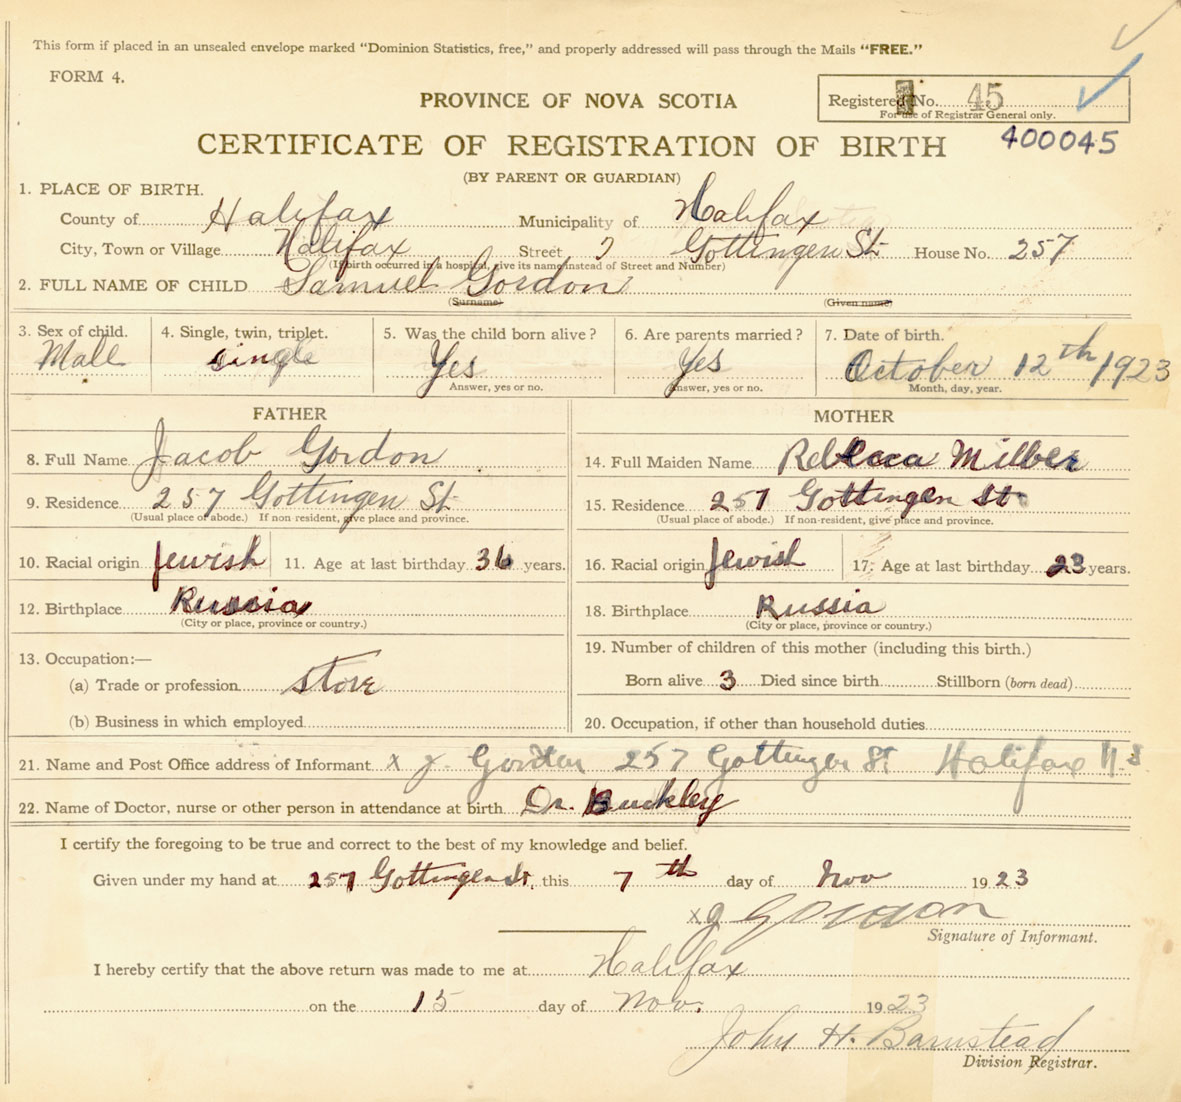 This form if placed in an unsealed envelope marked "Dominion Statistics, free," and properly addressed will pass through the Mails "FREE."
FORM 4.
PROVINCE OF NOVA SCOTIA
Registered No. 45
For use of Registrar General only.
CERTIFICATE OF REGISTRATION OF BIRTH
400045
(BY PARENT OR GUARDIAN)
1. PLACE OF BIRTH.
County of Halifax Municipality of Halifax
City, Town or Village Halifax Street Gottingen St. House No. 257
(If birth occurred in a hospital, give its name instead of Street and Number)
2. FULL NAME OF CHILD Samuel Gordon
(Surname) (Given name)
3. Sex of child. Male
4. Single, twin, triplet. single
5. Was the child born alive? Yes
Answer, yes or no.
6. Are parents married? Yes
Answer, yes or no.
7. Date of birth. October 12th 1923
Month, day, year.
FATHER
8. Full Name Jacob Gordon
9. Residence 257 Gottingen St.
(Usual place of abode.) If non resident, give place and province.
10. Racial origin Jewish 11. Age at last birthday 36 years.
12. Birthplace Russia
(City or place, province or country.)
13. Occupation:—
(a) Trade or profession store
(b) Business in which employed
MOTHER
14. Full Maiden Name Rebecca Milber
15. Residence 257 Gottingen St.
(Usual place of abode.) If non-resident, give place and province.
16. Racial origin Jewish 17. Age at last birthday 23 years.
18. Birthplace Russia
(City or place, province or country.)
19. Number of children of this mother (including this birth.)
Born alive 3 Died since birth Stillborn (born dead)
20. Occupation, if other than household duties
21. Name and Post Office address of Informant x J. Gordon 257 Gottingen St Halifax N.S.
22. Name of Doctor, nurse or other person in attendance at birth Dr. Buckley
I certify the foregoing to be true and correct to the best of my knowledge and belief.
Given under my hand at 257 Gottingen St, this 7th day of Nov 1923
x J Gordon
Signature of Informant.
I hereby certify that the above return was made to me at Halifax
on the 15 day of Nov. 1923
John H. Barnstead
Division Registrar.